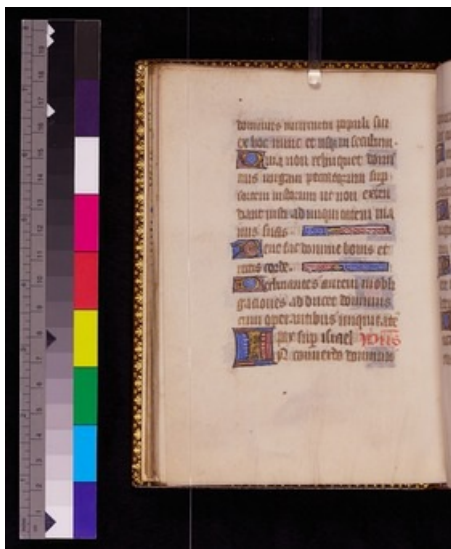 dominus in circuitu populi sui
ex hoc nunc et usque in seculum.
Quia non relinquet domi
nus virgam peccatorum sup
sortem iustorum ut non exten
dant iusti ad iniquitatem ma
nus suas.
Bene fac domine bonis et
rectis corde.
Declinantes autem in obli
gaciones adducet dominus
cum operantibus iniquitate
pax sup israel
In convertendo dominus